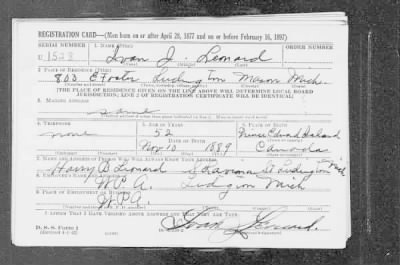 REGISTRATION CARD—(Men born on or after April 28, 1877 and on or before February 16, 1897)
SERIAL NUMBER 1. NAME (Print) ORDER NUMBER
U 1528 Ivan J. Leonard
2. PLACE OF RESIDENCE (Print)
803 E Foster Ludington Mason Mich.
(THE PLACE OF RESIDENCE GIVEN ON THE LINE ABOVE WILL DETERMINE LOCAL BOARD
JURISDICTION; LINE 2 OF REGISTRATION CERTIFICATE WILL BE IDENTICAL)
3. MAILING ADDRESS
same
4. TELEPHONE 5. AGE IN YEARS 6. PLACE OF BIRTH
none 52 Prince Edward Island
DATE OF BIRTH
Nov 10 1889 Canada
7. NAME AND ADDRESS OF PERSON WHO WILL ALWAYS KNOW YOUR ADDRESS
Harry B Leonard Ludington Mich
8. EMPLOYER'S NAME AND ADDRESS
W.P.A. Ludington Mich
9. PLACE OF EMPLOYMENT OR BUSINESS
W.P.A.
I AFFIRM THAT I HAVE VERIFIED ABOVE ANSWERS AND THAT THEY ARE TRUE.
D. S. S. Form 1
Ivan Leonard